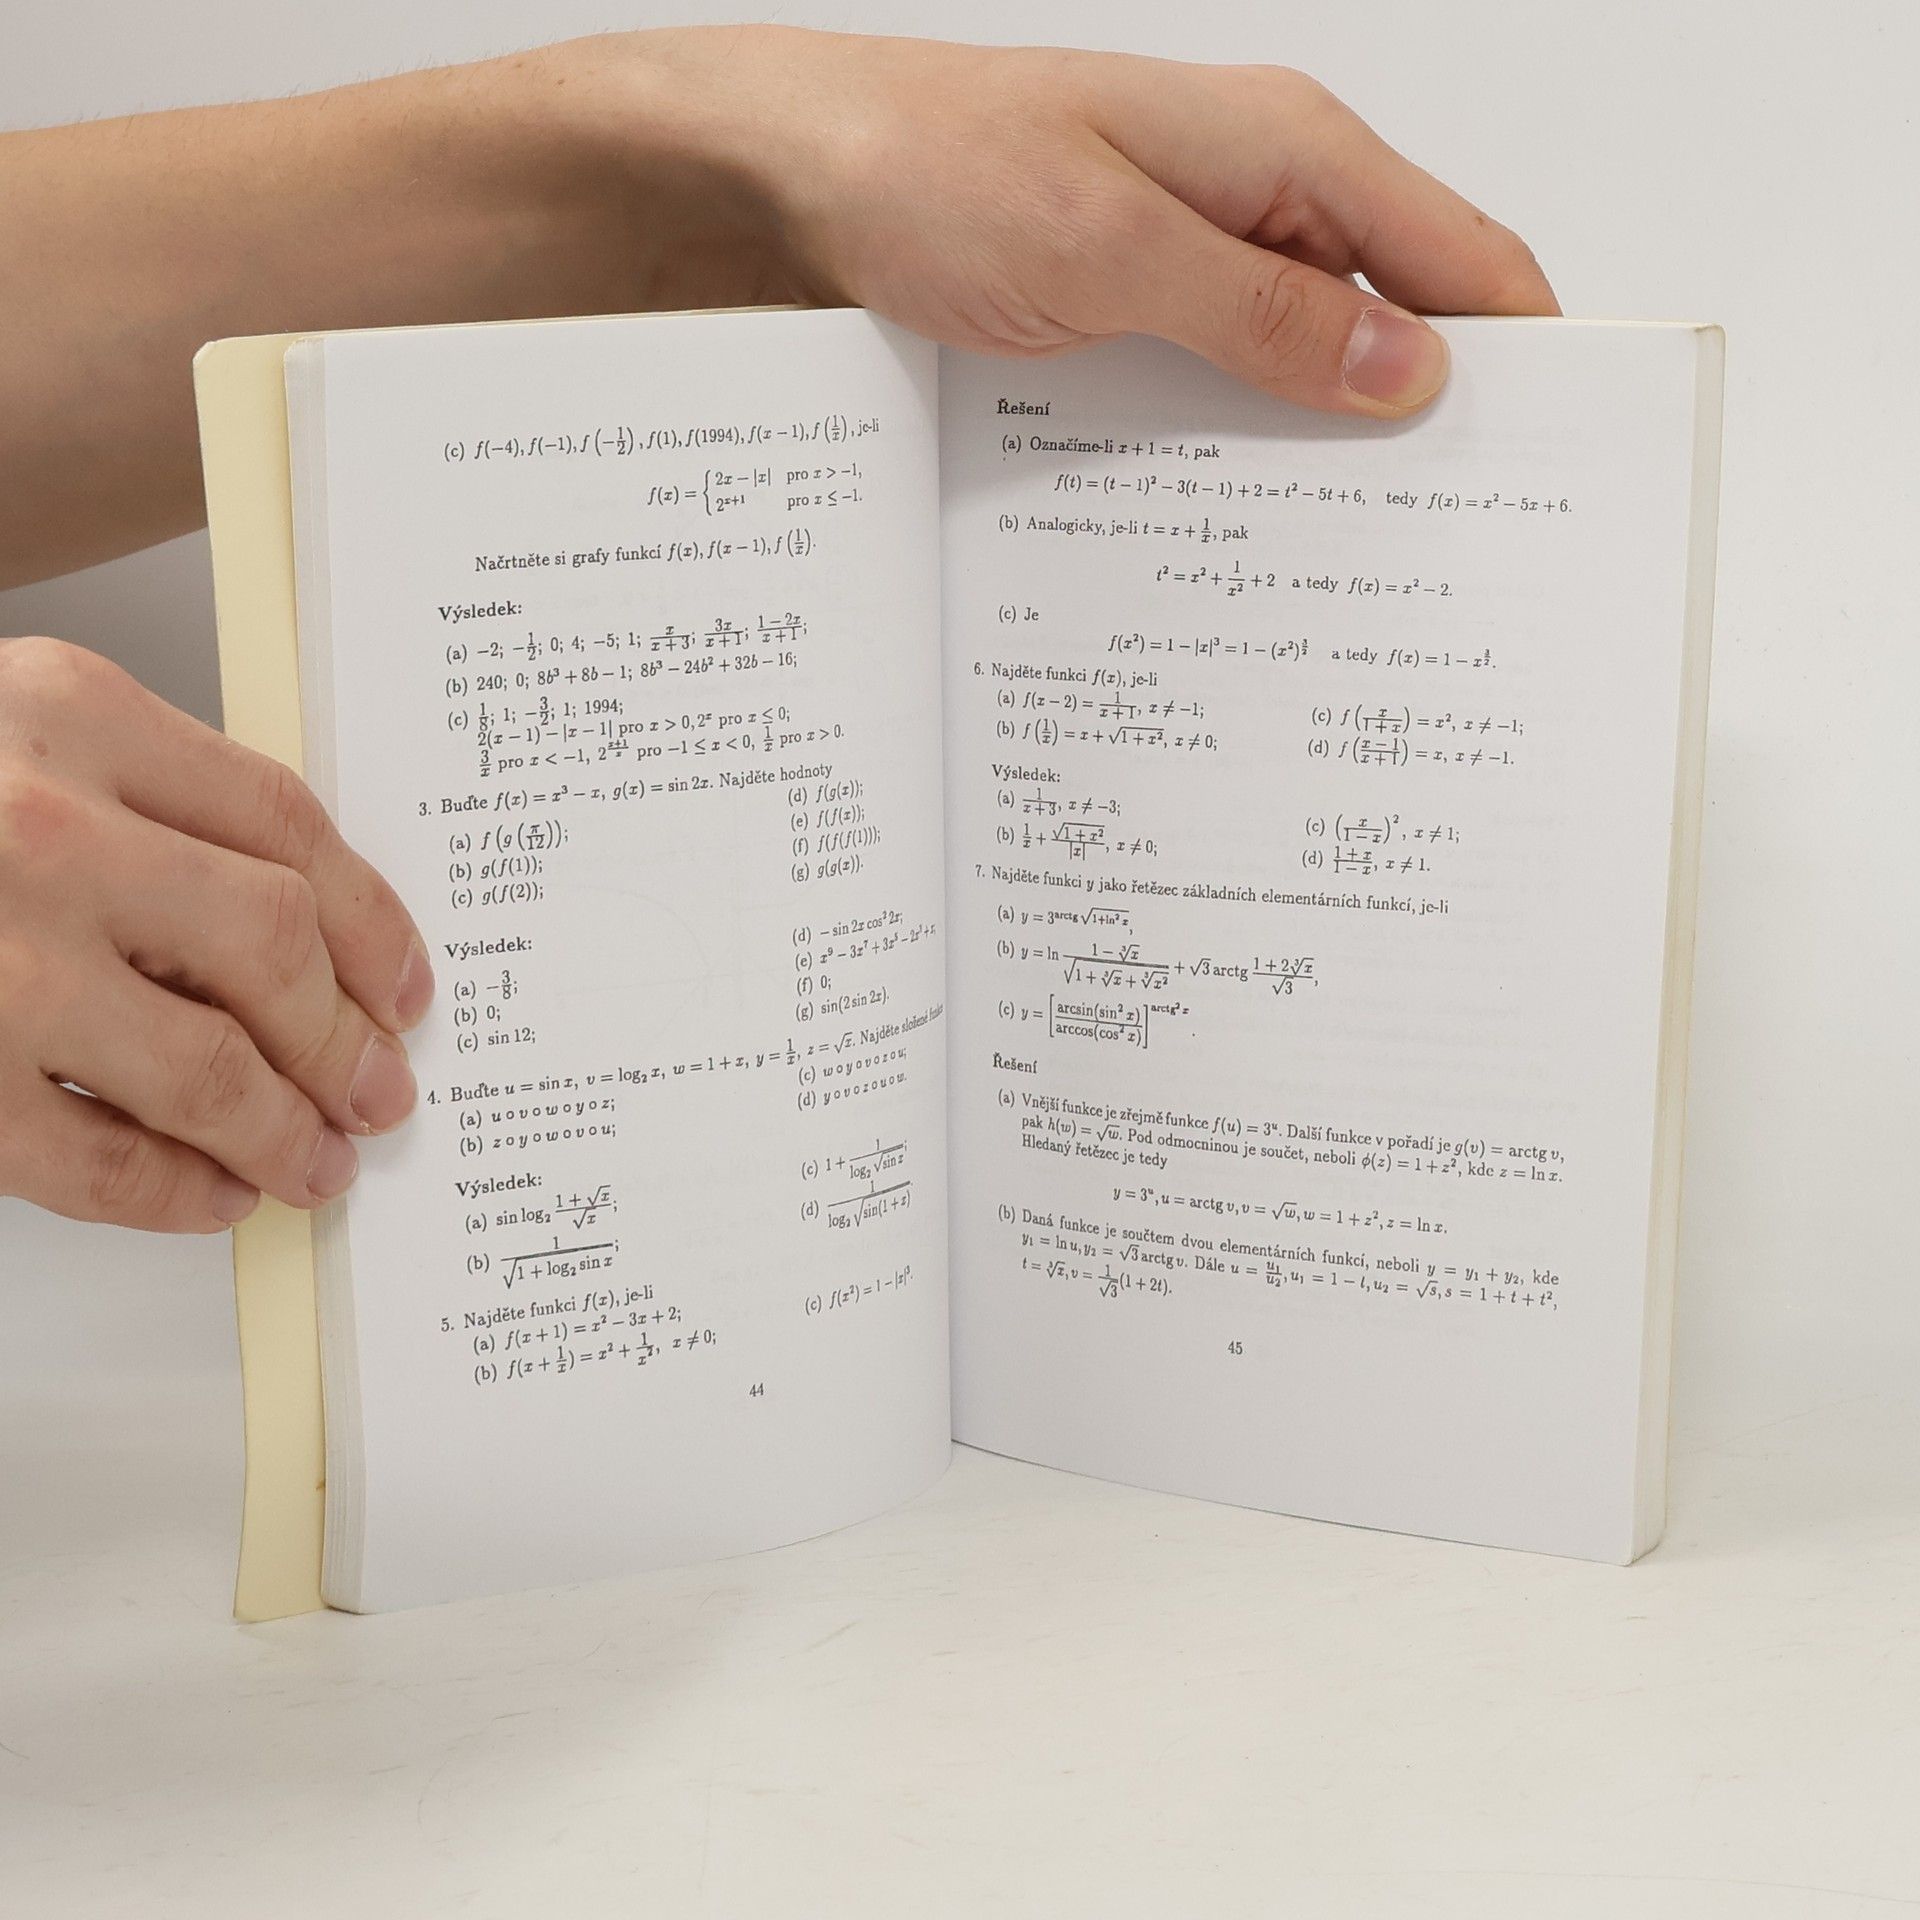 (c) f(−4), f(−1), f(−1/2), f(1), f(1994), f(x − 1), f(1/x), je-li
f(x) = { 2x − |x| pro x > −1,
2^{x+1} pro x ≤ −1.
Načrtněte si grafy funkcí f(x), f(x − 1), f(1/x).
Výsledek:
(a) −2; −1/2; 0; 4; −5; 1; x/(x+3); 3x/(x+1); (1−2x)/(x+1);
(b) 240; 0; 8b³ + 8b − 1; 8b³ − 24b² + 32b − 16;
(c) 1/8; 1; −3/2; 1; 1994;
2(x − 1) − |x − 1| pro x > 0, 2^x pro x ≤ 0;
3/x pro x < −1, 2^{(x+1)/x} pro −1 ≤ x < 0, 1/x pro x > 0.
3. Buďte f(x) = x³ − x, g(x) = sin 2x. Najděte hodnoty
(a) f(g(π/12));
(b) g(f(1));
(c) g(f(2));
(d) f(g(x));
(e) f(f(x));
(f) f(f(f(1)));
(g) g(g(x)).
Výsledek:
(a) −3/8;
(b) 0;
(c) sin 12;
(d) − sin 2x cos² 2x;
(e) x⁹ − 3x⁷ + 3x⁵ − 2x³ + x;
(f) 0;
(g) sin(2 sin 2x).
4. Buďte u = sin x, v = log₂ x, w = 1 + x, y = 1/x, z = √x. Najděte složené
(a) u o v o w o y o z;
(b) z o y o w o v o u;
(c) w o y o v o z o u;
(d) y o v o z o u o w.
Výsledek:
(a) sin log₂ (1 + √x)/√x;
(b) 1/√(1 + log₂ sin x);
(c) 1 + 1/(log₂ √(sin x));
(d) 1/(log₂ √(sin(1 + x))).
5. Najděte funkci f(x), je-li
(a) f(x + 1) = x² − 3x + 2;
(b) f(x + 1/x) = x² + 1/x², x ≠ 0;
(c) f(x²) = 1 − |x|³.
44
Řešení
(a) Označíme-li x + 1 = t, pak
f(t) = (t − 1)² − 3(t − 1) + 2 = t² − 5t + 6, tedy f(x) = x² − 5x + 6.
(b) Analogicky, je-li t = x + 1/x, pak
t² = x² + 1/x² + 2 a tedy f(x) = x² − 2.
(c) Je
f(x²) = 1 − |x|³ = 1 − (x²)^{3/2} a tedy f(x) = 1 − x^{3/2}.
6. Najděte funkci f(x), je-li
(a) f(x − 2) = 1/(x+1), x ≠ −1;
(b) f(1/x) = x + √(1 + x²), x ≠ 0;
(c) f(x/(1+x)) = x², x ≠ −1;
(d) f((x−1)/(x+1)) = x, x ≠ −1.
Výsledek:
(a) 1/(x+3), x ≠ −3;
(b) 1/x + √(1+x²)/|x|, x ≠ 0;
(c) (x/(1−x))², x ≠ 1;
(d) (1+x)/(1−x), x ≠ 1.
7. Najděte funkci y jako řetězec základních elementárních funkcí, je-li
(a) y = 3^{arctg √(1+ln² x)},
(b) y = ln (1 − ∛x)/√(1 + ∛x + ∛x²) + √3 arctg (1 + 2∛x)/√3,
(c) y = [arcsin(sin² x)/arccos(cos² x)]^{arctg² x}.
Řešení
(a) Vnější funkce je zřejmě funkce f(u) = 3^u. Další funkce v pořadí je g(v) = arctg v,
pak h(w) = √w. Pod odmocninou je součet, neboli ϕ(z) = 1 + z², kde z = ln x.
Hledaný řetězec je tedy
y = 3^u, u = arctg v, v = √w, w = 1 + z², z = ln x.
(b) Daná funkce je součtem dvou elementárních funkcí, neboli y = y₁ + y₂, kde
y₁ = ln u, y₂ = √3 arctg v. Dále u = u₁/u₂, u₁ = 1 − t, u₂ = √s, s = 1 + t + t²,
t = ∛x, v = 1/√3 (1 + 2t).
45